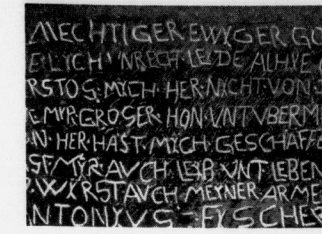 MECHTIGER EWYGER GO
ELYCH UNRECHT LEYDE ALHYE
RSTOS·MYCH·HER·NYCHT·VON·
MYR·GROSER·HON·VNT
N·HER·HAST·MYCH·GESCHAFF
MYR·AVCH·LEYB·VNT·LEBEN
WYRST·AVCH·MEYNER·ARME
NTONYVS-FYSCHER